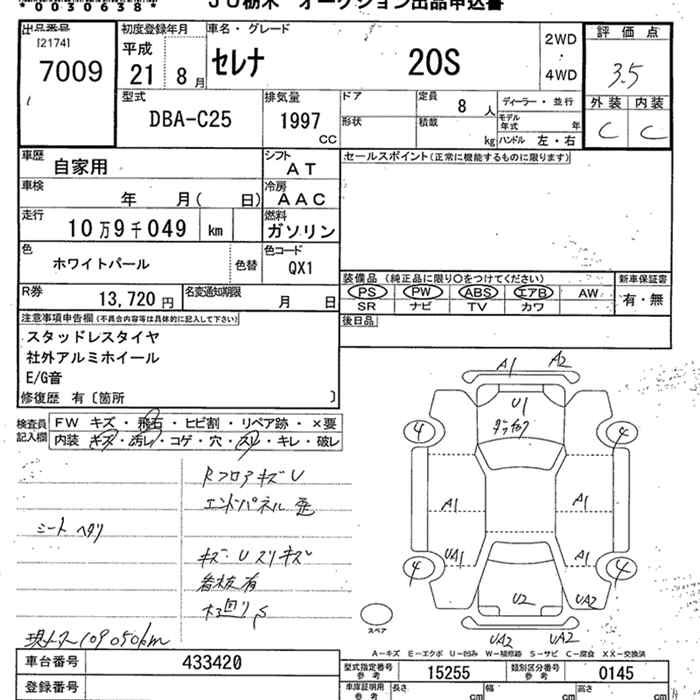 *0030638*
JU栃木 オークション出品申込書
出品番号
[2174]
7009
初度登録年月
平成
21 8月
車名・グレード
セレナ 20S
2WD
・
4WD
評価点
3.5
外装 内装
C C
型式
DBA-C25
排気量
1997
CC
ドア
形状
定員
8人
積載
kg
ディーラー・並行
モデル年式 年
ハンドル 左・右
車歴
自家用
シフト
AT
車検
年 月( 日)
冷房
AAC
走行
10万9千049 km
燃料
ガソリン
色
ホワイトパール
色替
色コード
QX1
R券
13,720円
名変通知期限
月 日
セールスポイント(正常に機能するものに限ります)
装備品(純正品に限り○をつけてください)
PS PW ABS エアB AW
SR ナビ TV カワ
新車保証書
有・無
後日品
注意事項申告欄(不具合内容等は具体的に記入して下さい)
スタッドレスタイヤ
社外アルミホイール
E/G音
修復歴 有〔箇所 〕
検査員
記入欄
FW キズ・飛石・ヒビ割・リペア跡・×要
内装 キズ・汚レ・コゲ・穴・スレ・キレ・破レ
RフロアキズU
エンドパネル歪
シートヘタリ
キズ U スリキズ
看板有
下回りS
現メータ109050km
A1 A2
U1
4 4
A1 A1
UA1 A1
4 4
U2 UA2
UA2 UA2
スペア
A-キズ E-エクボ U-凹み W-補修跡 S-サビ C-腐食 XX-交換済
車台番号
433420
登録番号
型式指定番号
参考
15255
類別区分番号
参考
0145
車庫証明用
参考
長さ cm
幅 cm
高さ cm